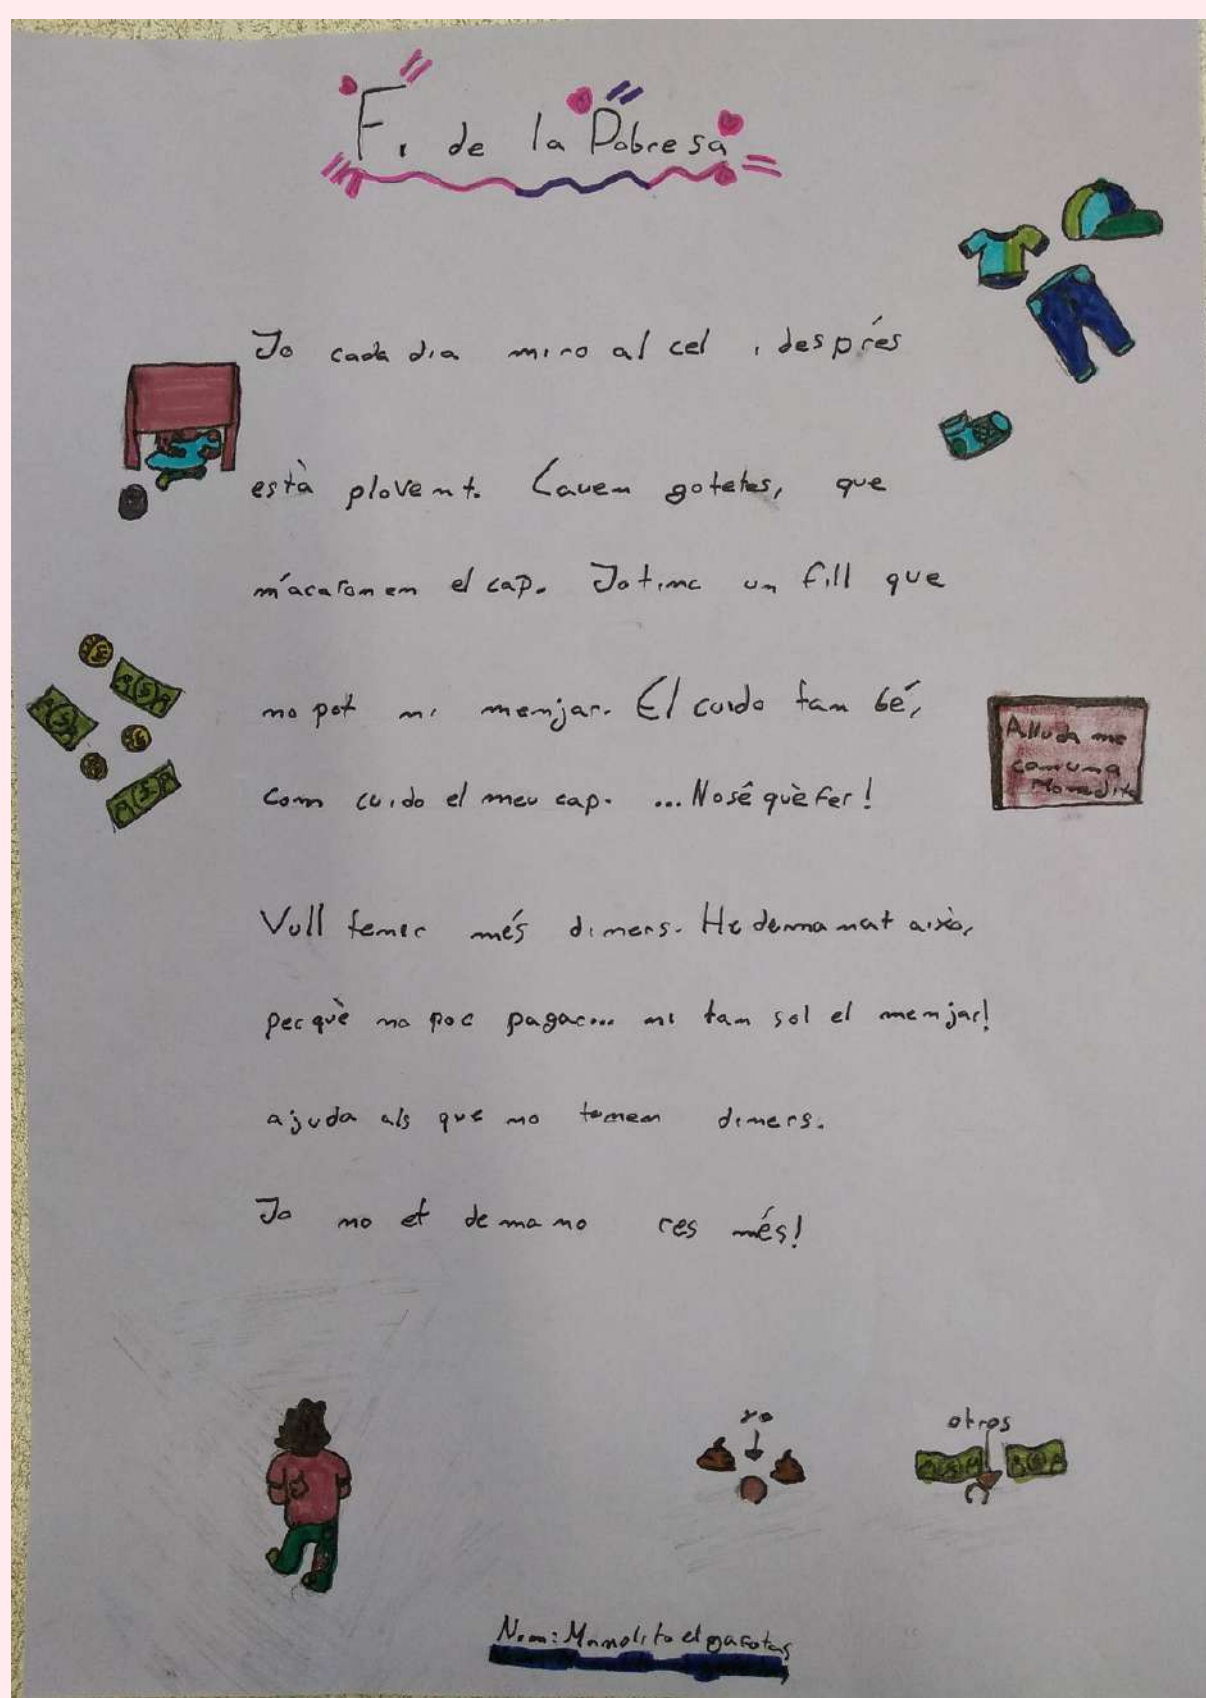 Fi de la Pobresa
Jo cada dia miro al cel i després
està plovent. Cauen gotetes, que
m'acaronen el cap. Jo tinc un fill que
no pot ni menjar. El cuido tan bé,
com cuido el meu cap. ...No sé què fer!
Alluda me
con una
Monedita
Vull tenir més diners. He demanat això,
perquè no poc pagar... ni tan sol el menjar!
ajuda als que no tenen diners.
Jo no et demano res més!
yo
otros
Nom: Manolito el gafotas